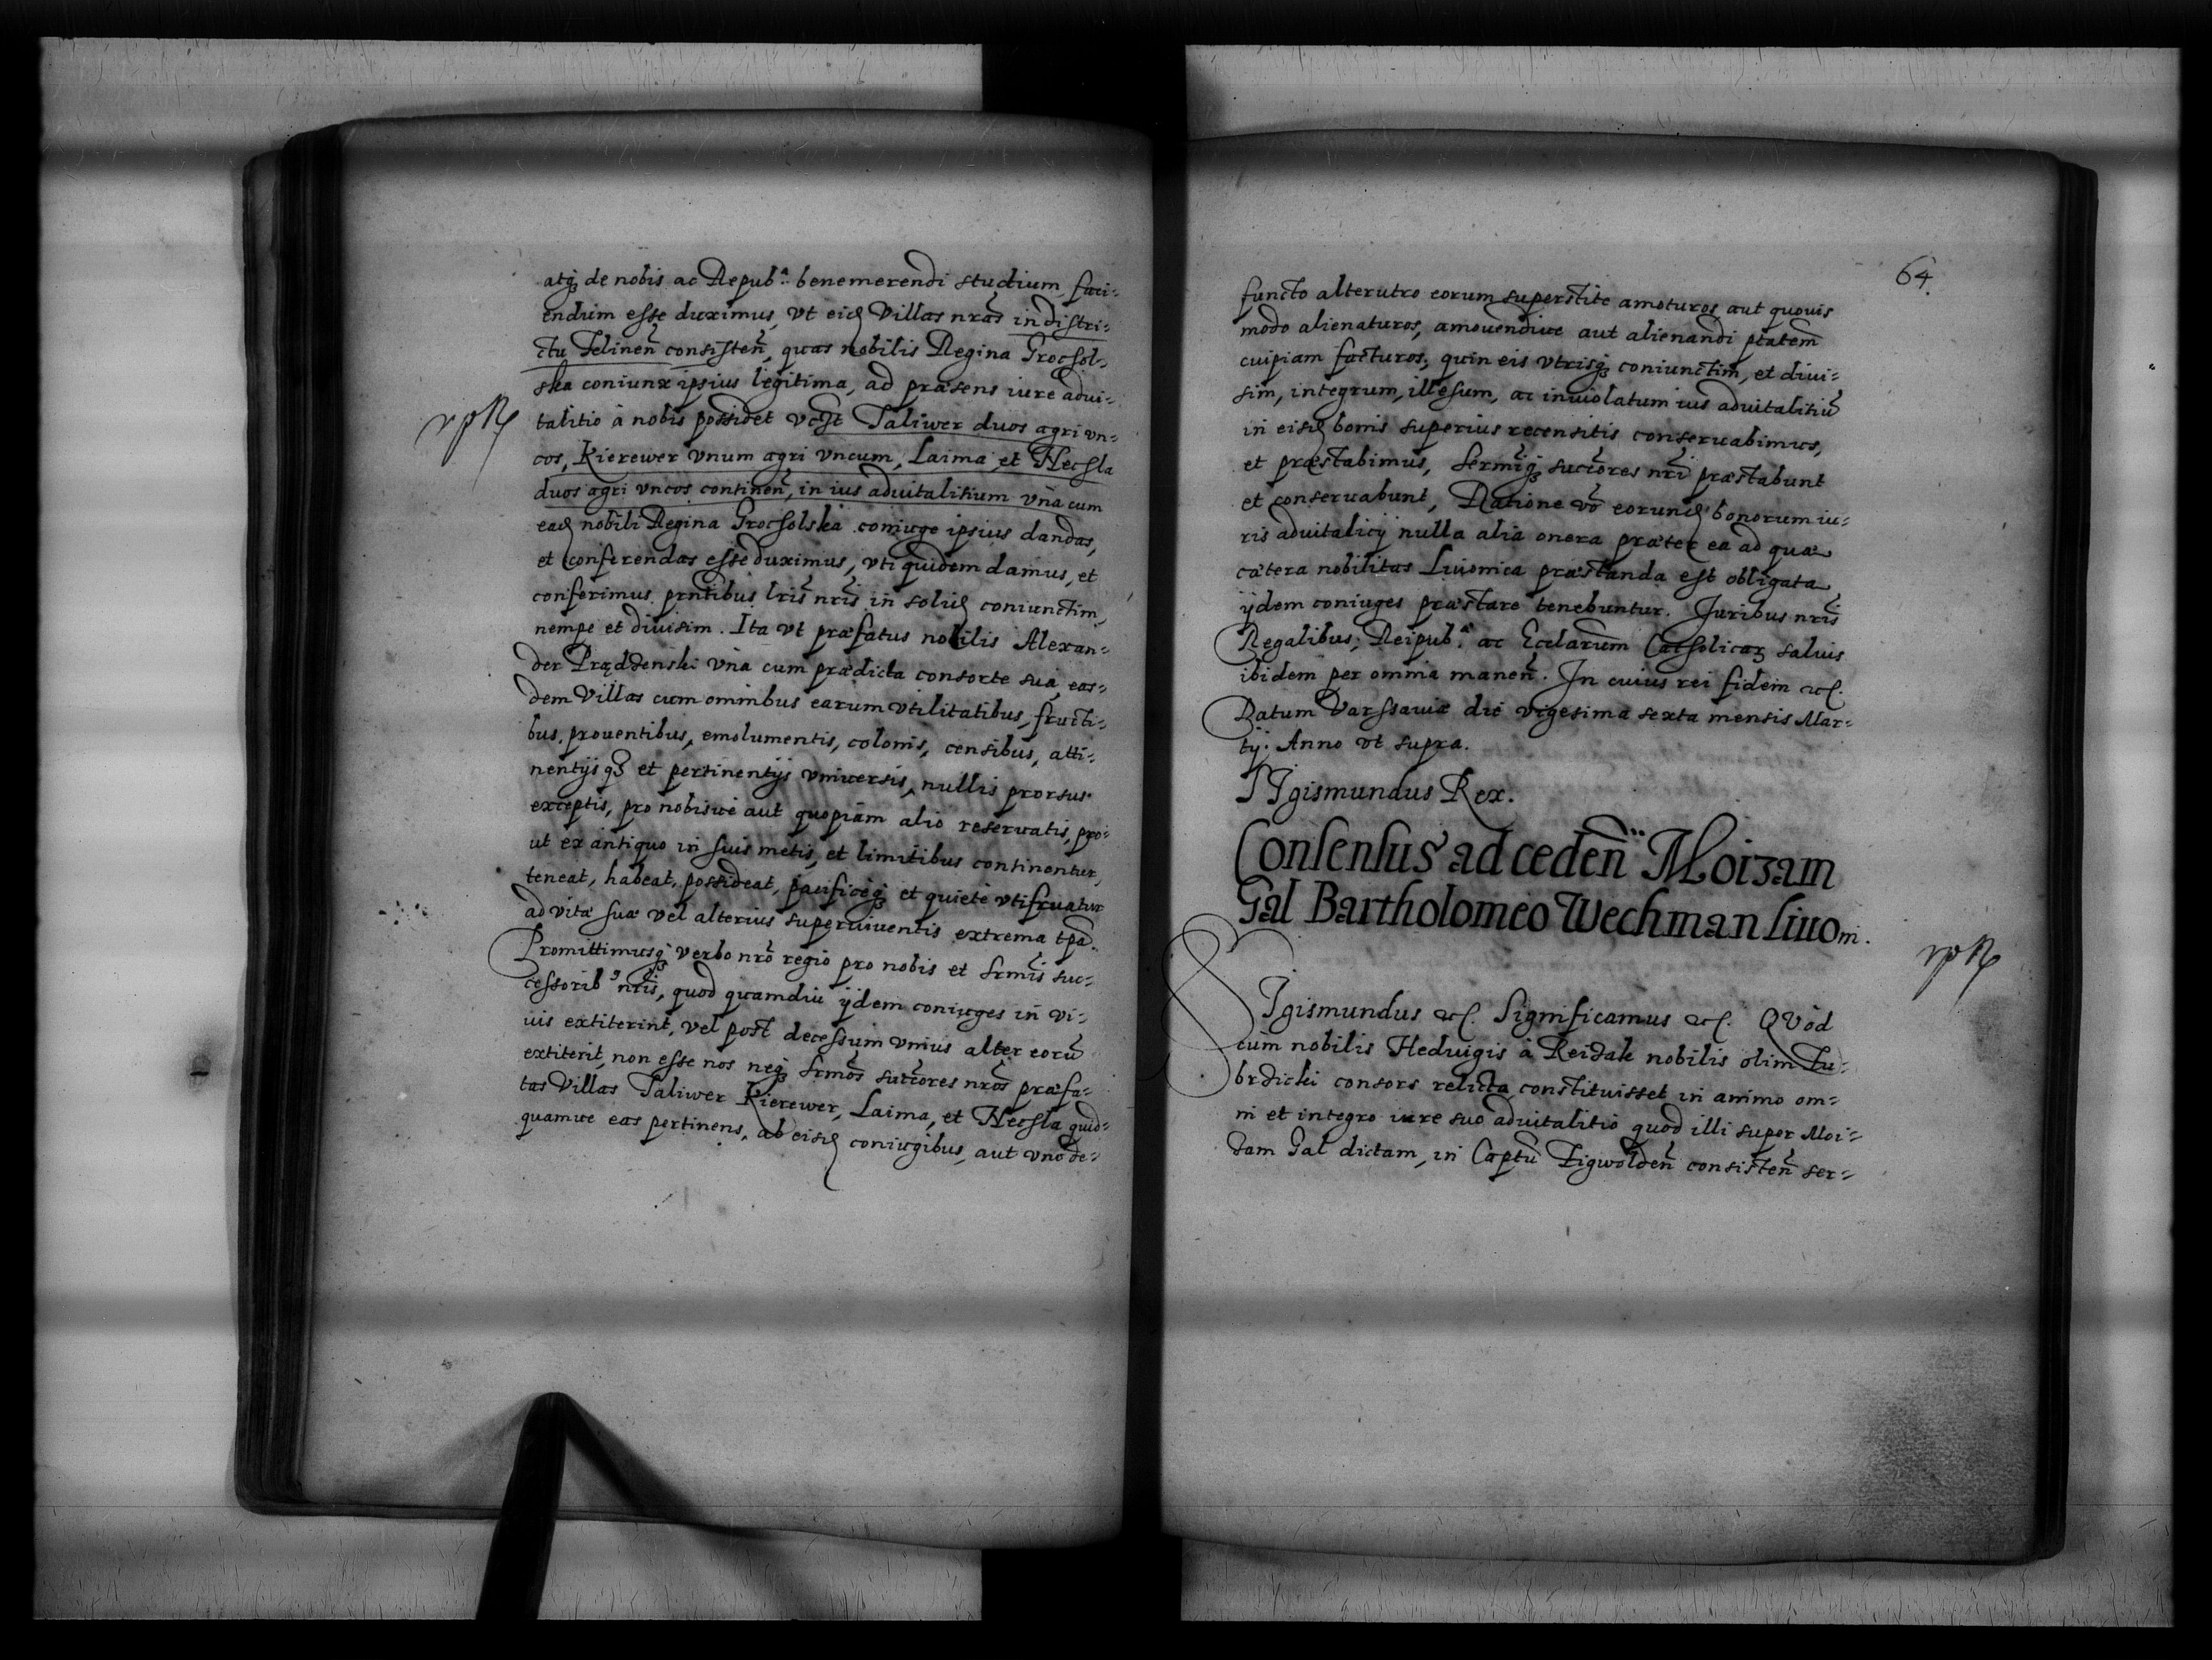 atq₃ de nobis ac Repub.ᵃ benemerendi studium faci-
endum esse duximus, vt eid Villas nras̃ in distri-
ctu Felinen̄ consisten̄, quas nobilis Regina Grocsol-
ska coniunx ipsius legitima, ad præsens iure advi-
talitio à nobis possidet vcst Taliwer duos agri vn-
cos, Kierewer vnum agri vncum, Laima et Necsla
duos agri vncos continen̄, in ius advitalitium vnà cum
ead nobili Regina Grocsolska coniuge ipsius dandas,
et conferendas esse duximus, vti quidem damus, et
conferimus prntibus lris̃ nris̃ in solid coniunctim,
nempe et diuisim. Ita vt præfatus nobilis Alexan-
der Prądzenski vnà cum prædicta consorte sua, eas-
dem Villas cum omnibus earum vtilitatibus, fructi-
bus, prouentibus, emolumentis, colonis, censibus, atti-
nentijsq₃ et pertinentijs vniuersis, nullis prorsus
exceptis, pro nobisue aut quopiam alio reseruatis, pro-
ut ex antiquo in suis metis, et limitibus continentur,
teneat, habeat, possideat, pacificèq₃ et quietè vtifruatur
ad vitæ suæ vel alterius superviuentis extrema tp̃a.
Promittimusq₃ verbo nrõ regio pro nobis et Srmis̃ suc-
cessorib⁹ nris̃, quod quamdiu ijdem coniuges in vi-
uis extiterint, vel post decessum vnius alter eorũ
extiterit, non esse nos neq₃ Srmos̃ succores̃ nros̃ præfa-
tas Villas Taliwer Kierewer, Laima, et Necsla quid-
quamue eas pertinens, ab eisd coniugibus, aut vno de-
rpR
64.
functo alterutro eorum superstite amoturos, aut quouis
modo alienaturos, amouendiue aut alienandi ptatem̃
cuipiam facturos, quin eis vtrisq₃ coniunctim, et diui-
sim, integrum, illesum, ac inuiolatum ius advitalitiũ
in eisd bonis superius recensitis conseruabimus,
et præstabimus, Sermiq₃̃ succores̃ nri præstabunt
et conseruabunt, Ratione võ eorund bonorum iu-
ris advitalicij nulla alia onera præter ea ad quæ
cætera nobilitas Liuonica præstanda est obligata,
ijdem coniuges præstare tenebuntur. Juribus nris̃
Regalibus, Reipub.ᵃ ac Ecclarum̃ Catholicarꝫ saluis
ibidem per omnia manen̄. In cuius rei fidem etc.
Datum Varssauiæ die vigesima sexta mensis Mar-
tij. Anno vt supra.
SIgismundus Rex.
Consensus ad ceden̄ Moizam
Gal Bartholomeo Wechman Liuoni.
rpR
SIgismundus etc. Significamus etc. QVòd
cùm nobilis Hedvigis à Reizak nobilis olim Fu-
brdicki consors relicta constituisset in animo om-
ni et integro iure suo advitalitio quod illi super Moi-
zam Gal dictam, in Captũ Zigwolden̄ consisten̄ ser-